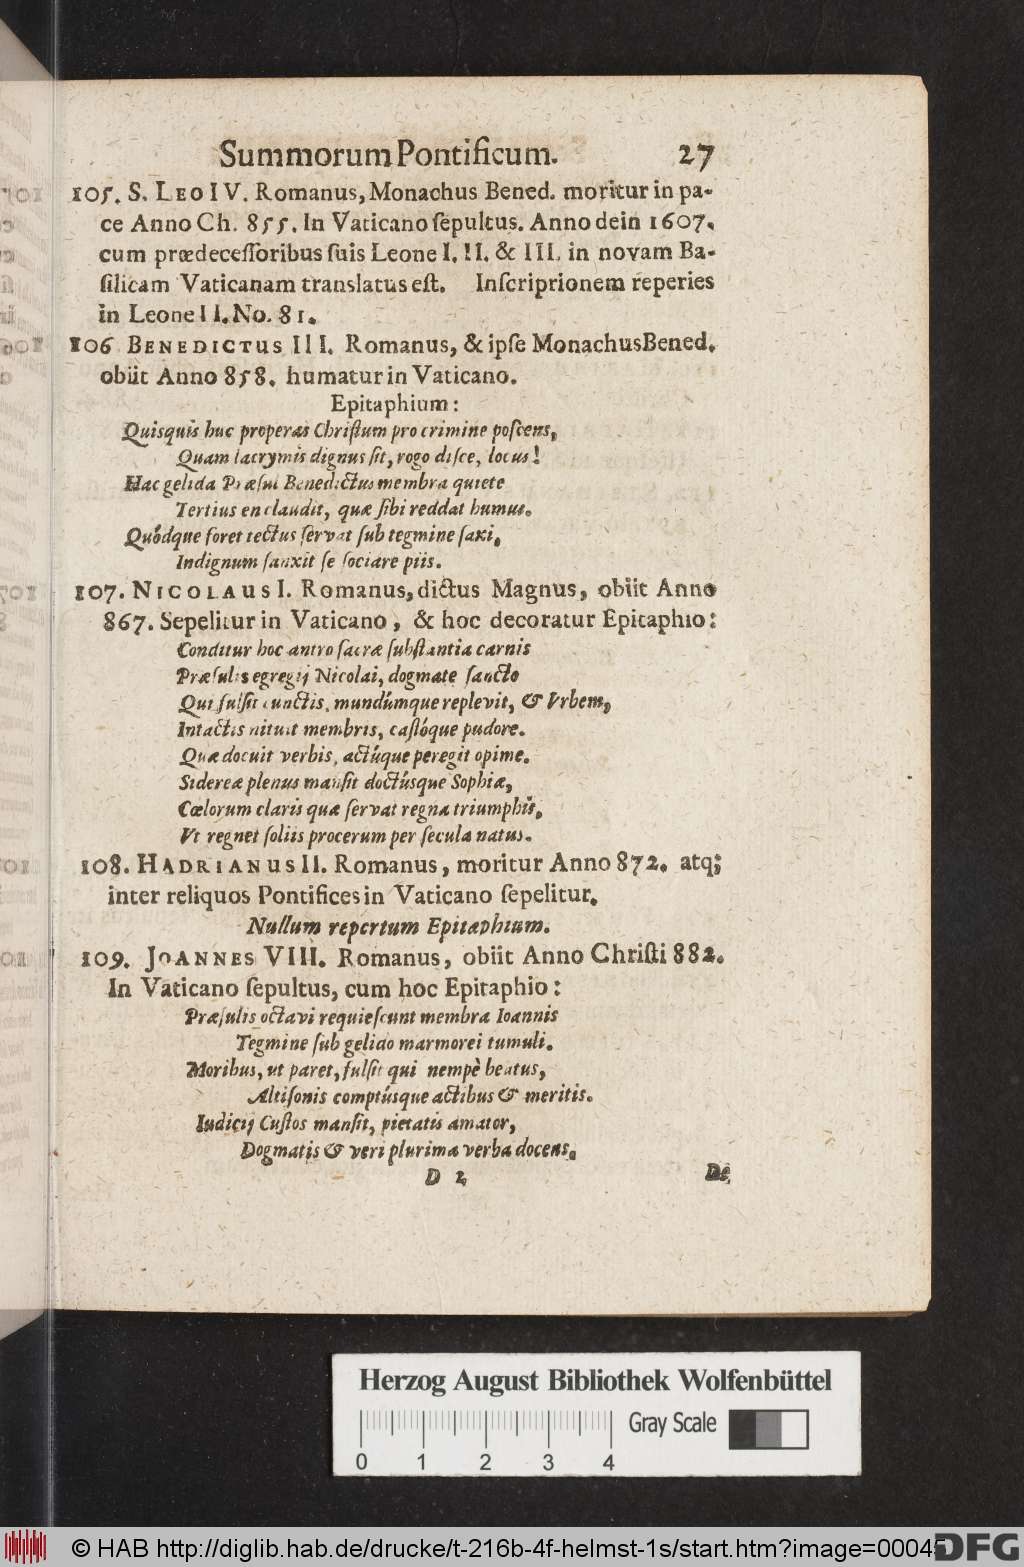 Summorum Pontificum. 27
105. S. LEO IV. Romanus, Monachus Bened. moritur in pa-
ce Anno Ch. 855. In Vaticano ſepultus. Anno dein 1607.
cum prædeceſſoribus ſuis Leone I. II. & III. in novam Ba-
ſilicam Vaticanam translatus eſt. Inſcriprionem reperies
in Leone II. No. 81.
106 BENEDICTUS III. Romanus, & ipſe Monachus Bened.
obiit Anno 858. humatur in Vaticano.
Epitaphium:
Quisquis huc properas Chriſtum pro crimine poſcens,
Quam lacrymis dignus ſit, rogo diſce, locus!
Hac gelida Præſul Benedictus membra quiete
Tertius en claudit, quæ ſibi reddat humus.
Quódque foret tectus ſervat ſub tegmine ſaxi,
Indignum ſanxit ſe ſociare piis.
107. NICOLAUS I. Romanus, dictus Magnus, obiit Anno
867. Sepelitur in Vaticano, & hoc decoratur Epitaphio:
Conditur hoc antro ſacræ ſubſtantia carnis
Præſulis egregij Nicolai, dogmate ſancto
Qui fulſit cunctis, mundúmque replevit, & Vrbem,
Intactis nituit membris, caſtóque pudore.
Quæ docuit verbis, actúque peregit opime.
Sidereæ plenus manſit doctúsque Sophiæ,
Cœlorum claris quæ ſervat regna triumphis,
Vt regnet ſoliis procerum per ſecula natus.
108. HADRIANUS II. Romanus, moritur Anno 872. atq;
inter reliquos Pontifices in Vaticano ſepelitur.
Nullum repertum Epitaphium.
109. JOANNES VIII. Romanus, obiit Anno Chriſti 882.
In Vaticano ſepultus, cum hoc Epitaphio:
Præſulis octavi requieſcunt membra Ioannis
Tegmine ſub gelido marmorei tumuli.
Moribus, ut paret, fulſit qui nempè beatus,
Altiſonis comptúsque actibus & meritis.
Iudicij Cuſtos manſit, pietatis amator,
Dogmatis & veri plurima verba docens.
D 2 De
Herzog August Bibliothek Wolfenbüttel
Gray Scale
0 1 2 3 4
© HAB http://diglib.hab.de/drucke/t-216b-4f-helmst-1s/start.htm?image=00045
DFG